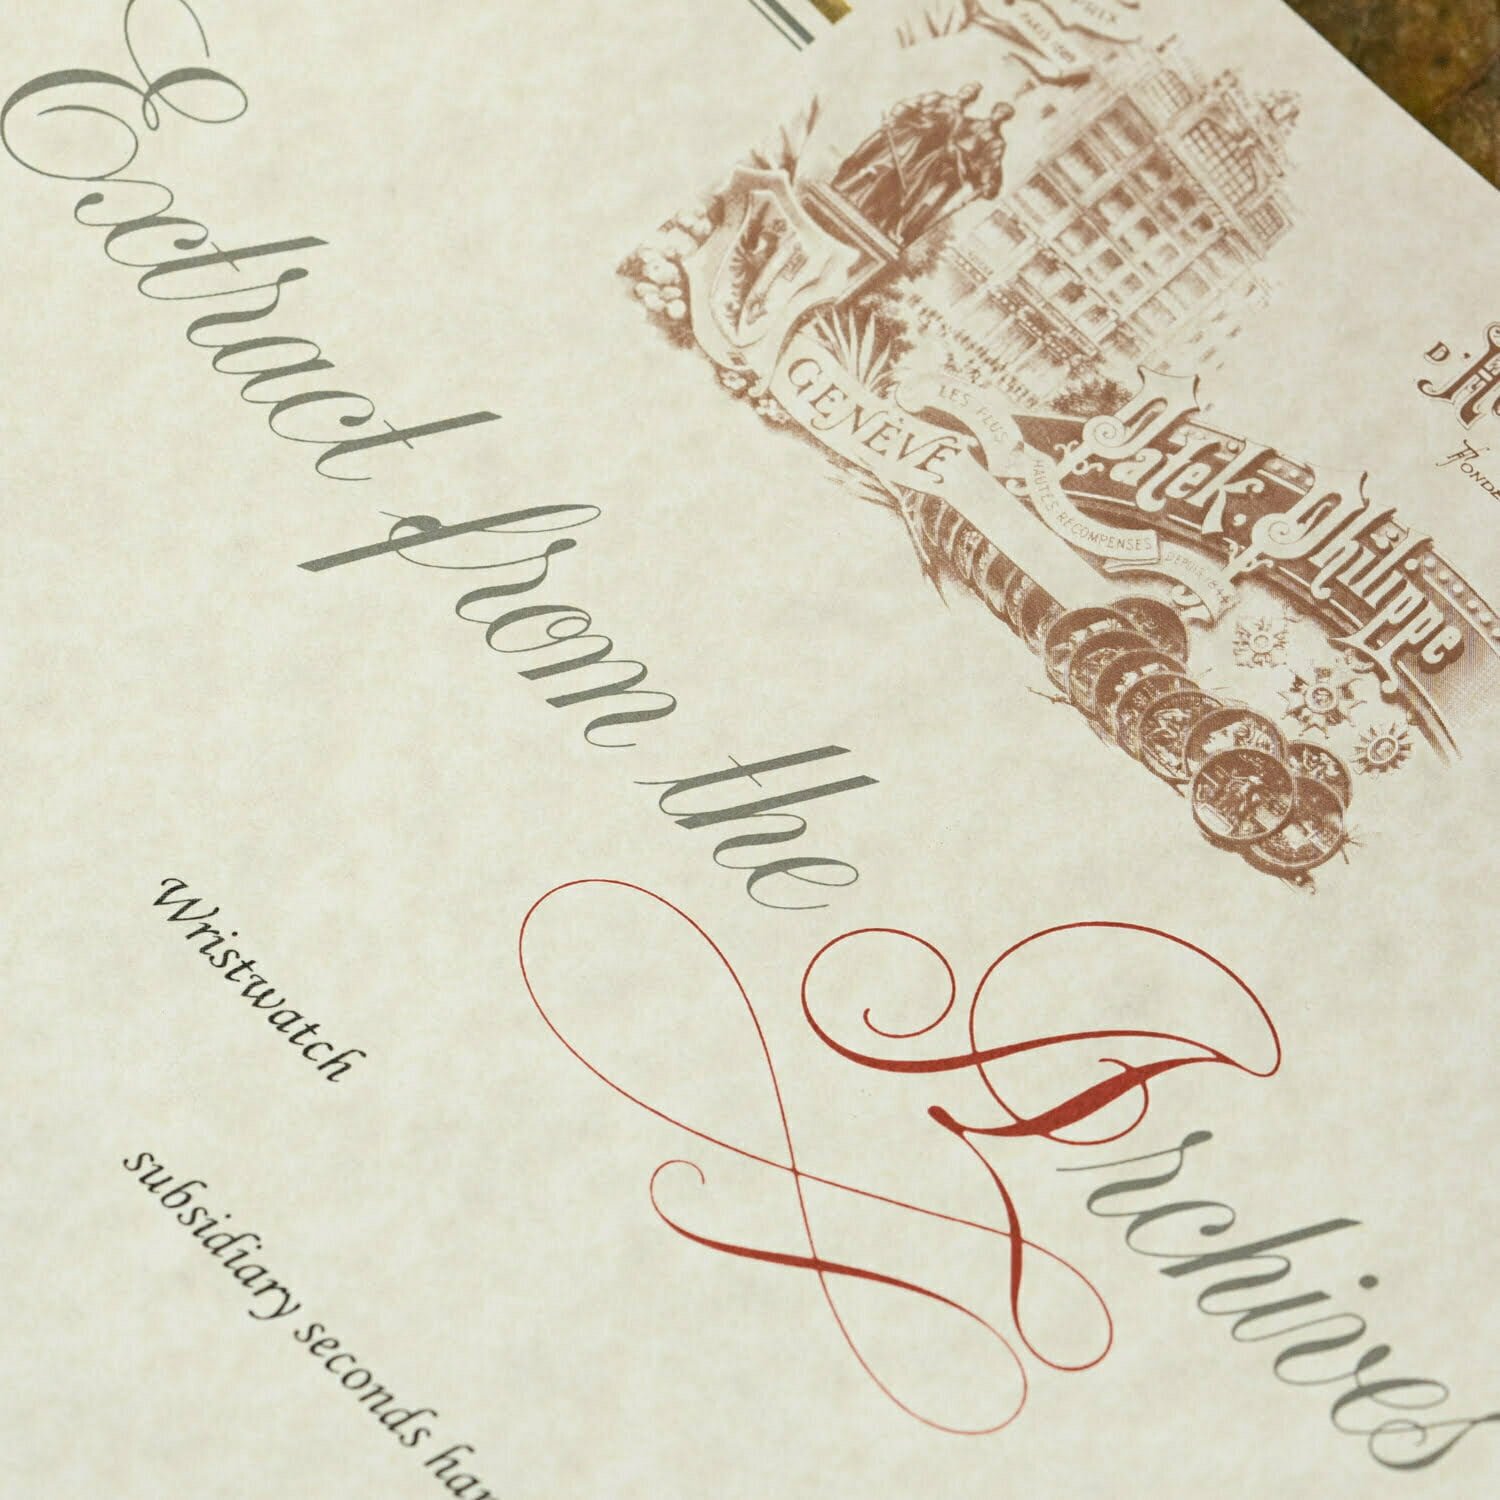 PARIS 1889
GENÈVE
LES PLUS
HAUTES RECOMPENSES
DEPUIS 1844
Patek. Philippe
Extract from the Archives
Wristwatch
subsidiary seconds han